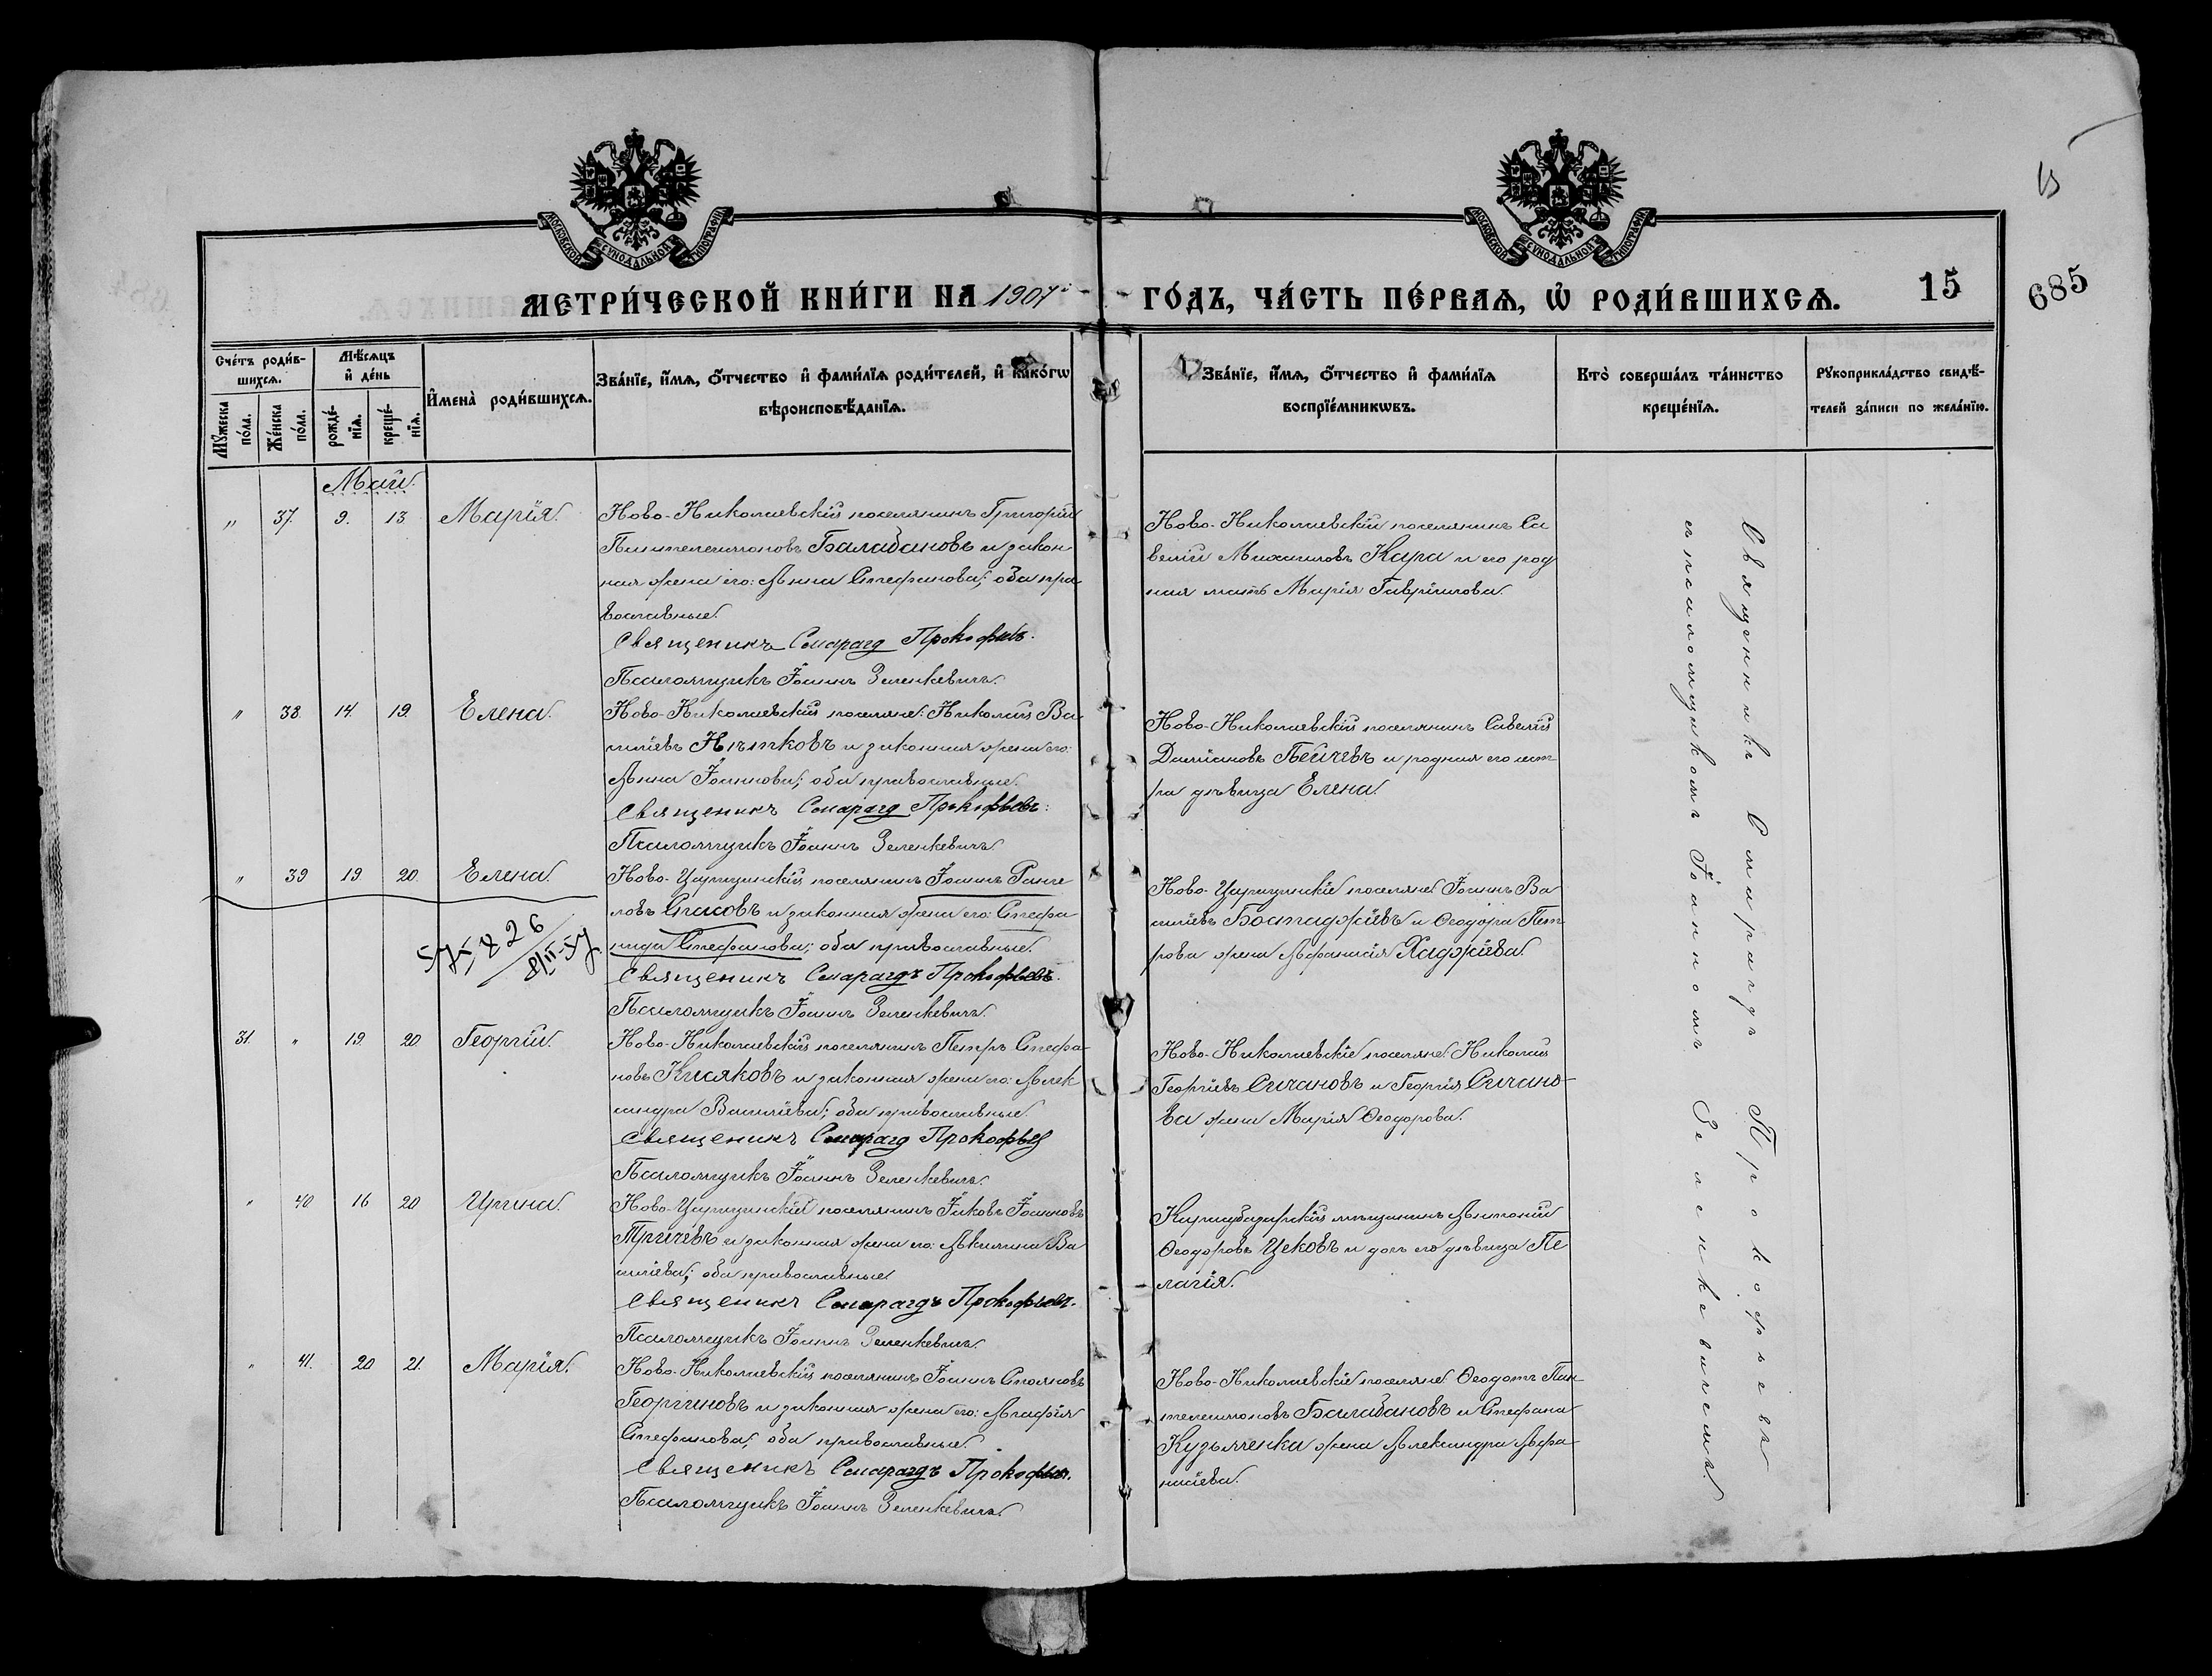 МОСКОВСКОЙ СѴНОДАЛЬНОЙ ТИПОГРАФІИ
МОСКОВСКОЙ СѴНОДАЛЬНОЙ ТИПОГРАФІИ
15
685
МЕТРИ́ЧЕСКОЙ КНИ́ГИ НА 1907 ГО́ДЪ, ЧА́СТЬ ПЕ́РВАѦ, Ѽ РОДИ́ВШИХСѦ.
15
Сче́тъ роди́в-
шихсѧ.
Мꙋ́жеска
по́ла.
Же́нска
по́ла.
Мѣ́сѧцъ
и҆ де́нь
рожде́-
нїѧ.
креще́-
нїѧ.
И҆мена̀ роди́вшихсѧ.
Зва́нїе, и҆́мѧ, ѻ҆́тчество и҆ фами́лїѧ роди́телей, и҆ како́гѡ
вѣроисповѣ́данїѧ.
Зва́нїе, и҆́мѧ, ѻ҆́тчество и҆ фами́лїѧ
воспрїе́мникѡвъ.
Кто̀ соверша́лъ та́инство
креще́нїѧ.
Рꙋкоприкла́дство свидѣ́-
телей за́писи по жела́нїю.
Май.
" 37. 9. 13. Марія.
Ново-Николаевскій поселянинъ Григорій
Пантелеимоновъ Балабановъ и закон
ная жена его: Анна Стефанова; оба пра
вославные.
Священикъ Смарагд Прокофьевъ.
Псаломщикъ Іоаннъ Зеленкевичъ.
Ново-Николаевскій поселянинъ Са
велій Михаиловъ Кара и его род
ная мать Марія Гавріилова.
" 38. 14. 19. Елена.
Ново-Николаевскій поселяне: Николай Ва
силіевъ Нѣтковъ и законная жена его:
Анна Іоаннова; оба православные.
Священикъ Смарагд Прокофьевъ.
Псаломщикъ Іоаннъ Зеленкевичъ.
Ново-Николаевскій поселянинъ Савелій
Даміановъ Пейчевъ и родная его сест
ра дѣвица Елена.
" 39 19. 20. Елена.
Ново-Царицинскій поселянинъ Іоаннъ Ранге
ловъ Спасовъ и законная жена его: Стефа
нида Стефанова; оба православные.
Священикъ Смарагдъ Прокофьевъ.
Псаломщикъ Іоаннъ Зеленкевичъ.
Ново-Царицинскіе поселяне Іоаннъ Ва
силіевъ Бостаджіевъ и Ѳеодора Пет
рова жена Афанасія Хаджіева.
826
31. " 19. 20. Георгій.
Ново-Николаевскій поселянинъ Петръ Стефа
новъ Кисяковъ и законная жена его: Алек
сандра Василіева; оба православные.
Священикъ Смарагд Прокофьев
Псаломщикъ Іоаннъ Зеленкевичъ.
Ново-Николаевскіе поселяне: Николай
Георгіевъ Сичановъ и Георгія Сичано-
ва жена Марія Ѳеодорова.
" 40. 16 20 Ирина.
Ново-Царицинскій поселянинъ Іаковъ Іоанновъ
Тричевъ и законная жена его: Акилина Ва
силіева; оба православные
Священикъ Смарагдъ Прокофьевъ.
Псаломщикъ Іоаннъ Зеленкевичъ.
Карасубазарскій мѣщанинъ Антоній
Ѳеодоровъ Цековъ и дочь его дѣвица Пе
лагія.
" 41. 20 21. Марія.
Ново-Николаевскій поселянинъ Іоаннъ Стояновъ
Георгиновъ и законная жена его: Агафія
Стефанова; оба православные.
Священикъ Смарагдъ Прокофьев.
Псаломщикъ Іоаннъ Зеленкевичъ.
Ново-Николаевскіе поселяне: Ѳеодотъ Пан
телеимоновъ Балабановъ и Стефана
Кузьменка жена Александра Афа
насіева.
Священникъ Смарагдъ Прокофьевъ
съ псаломщикомъ Іоанномъ Зеленкевичемъ.